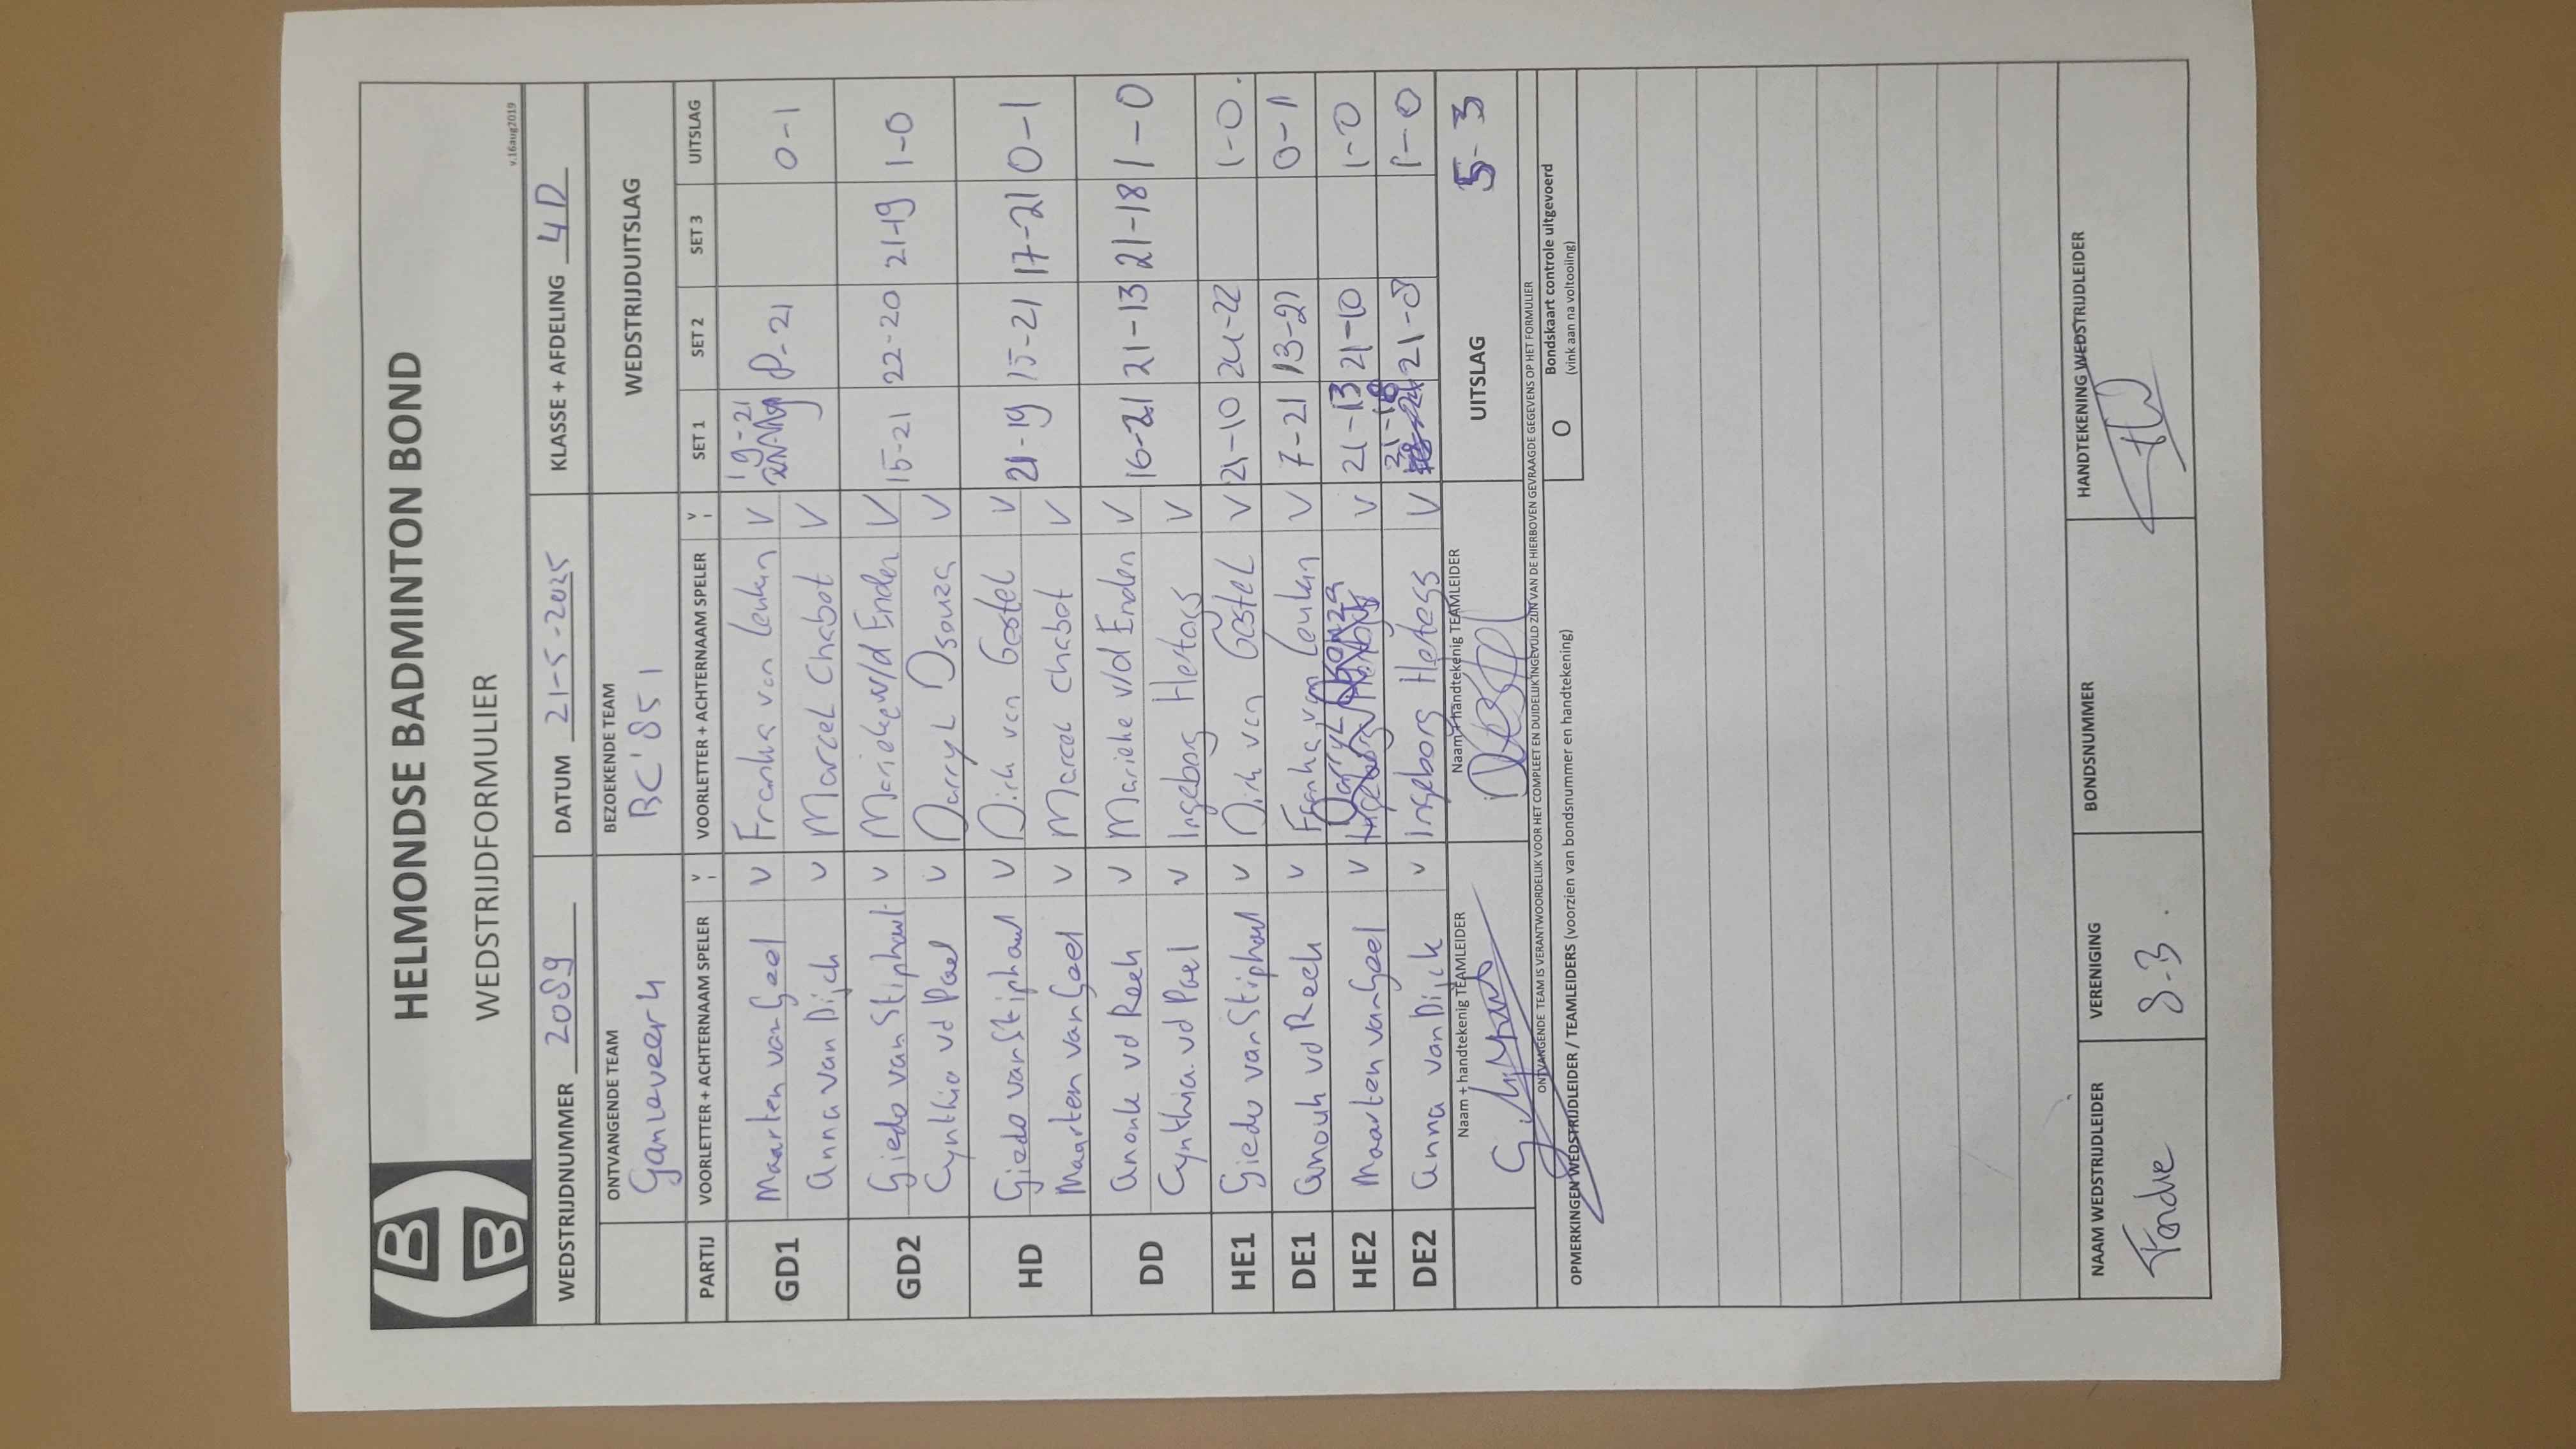 HELMONDSE BADMINTON BOND
WEDSTRIJDFORMULIER
v.16aug2019
WEDSTRIJDNUMMER 2089 DATUM 21-5-2025 KLASSE + AFDELING 4D
ONTVANGENDE TEAM BEZOEKENDE TEAM WEDSTRIJDUITSLAG
Ganzeveer 4 BC'85 1
PARTIJ VOORLETTER + ACHTERNAAM SPELER V VOORLETTER + ACHTERNAAM SPELER V SET 1 SET 2 SET 3 UITSLAG
GD1 Maarten van Geel V Franka van Leuken V 19-21 8-21 0-1
Anna van Dijck V Marcel Chabot V
GD2 Giedo van Stiphout V Marieke v/d Enden V 15-21 22-20 21-19 1-0
Cynthia vd Pael V Darryl Dsouza V
HD Giedo van Stiphout V Dirk van Gestel V 21-19 15-21 17-21 0-1
Maarten van Geel V Marcel Chabot V
DD Anouk vd Reek V Marieke v/d Enden V 16-21 21-13 21-18 1-0
Cynthia vd Pael V Ingeborg V
HE1 Giedo van Stiphout V Dirk van Gestel V 21-10 24-22 1-0.
DE1 Anouk vd Reek V Franka van Leuken V 7-21 13-21 0-1
HE2 Maarten van Geel V Darryl Dsouza V 21-13 21-10 1-0
DE2 Anna van Dijck V Ingeborg V 21-18 21-8 1-0
Naam + handtekenig TEAMLEIDER Naam + handtekenig TEAMLEIDER UITSLAG 5-3
ONTVANGENDE TEAM IS VERANTWOORDELIJK VOOR HET COMPLEET EN DUIDELIJK INGEVULD ZIJN VAN DE HIERBOVEN GEVRAAGDE GEGEVENS OP HET FORMULIER
OPMERKINGEN WEDSTRIJDLEIDER / TEAMLEIDERS (voorzien van bondsnummer en handtekening)
O Bondskaart controle uitgevoerd
(vink aan na voltooiing)
NAAM WEDSTRIJDLEIDER VERENIGING BONDSNUMMER HANDTEKENING WEDSTRIJDLEIDER
8-3.